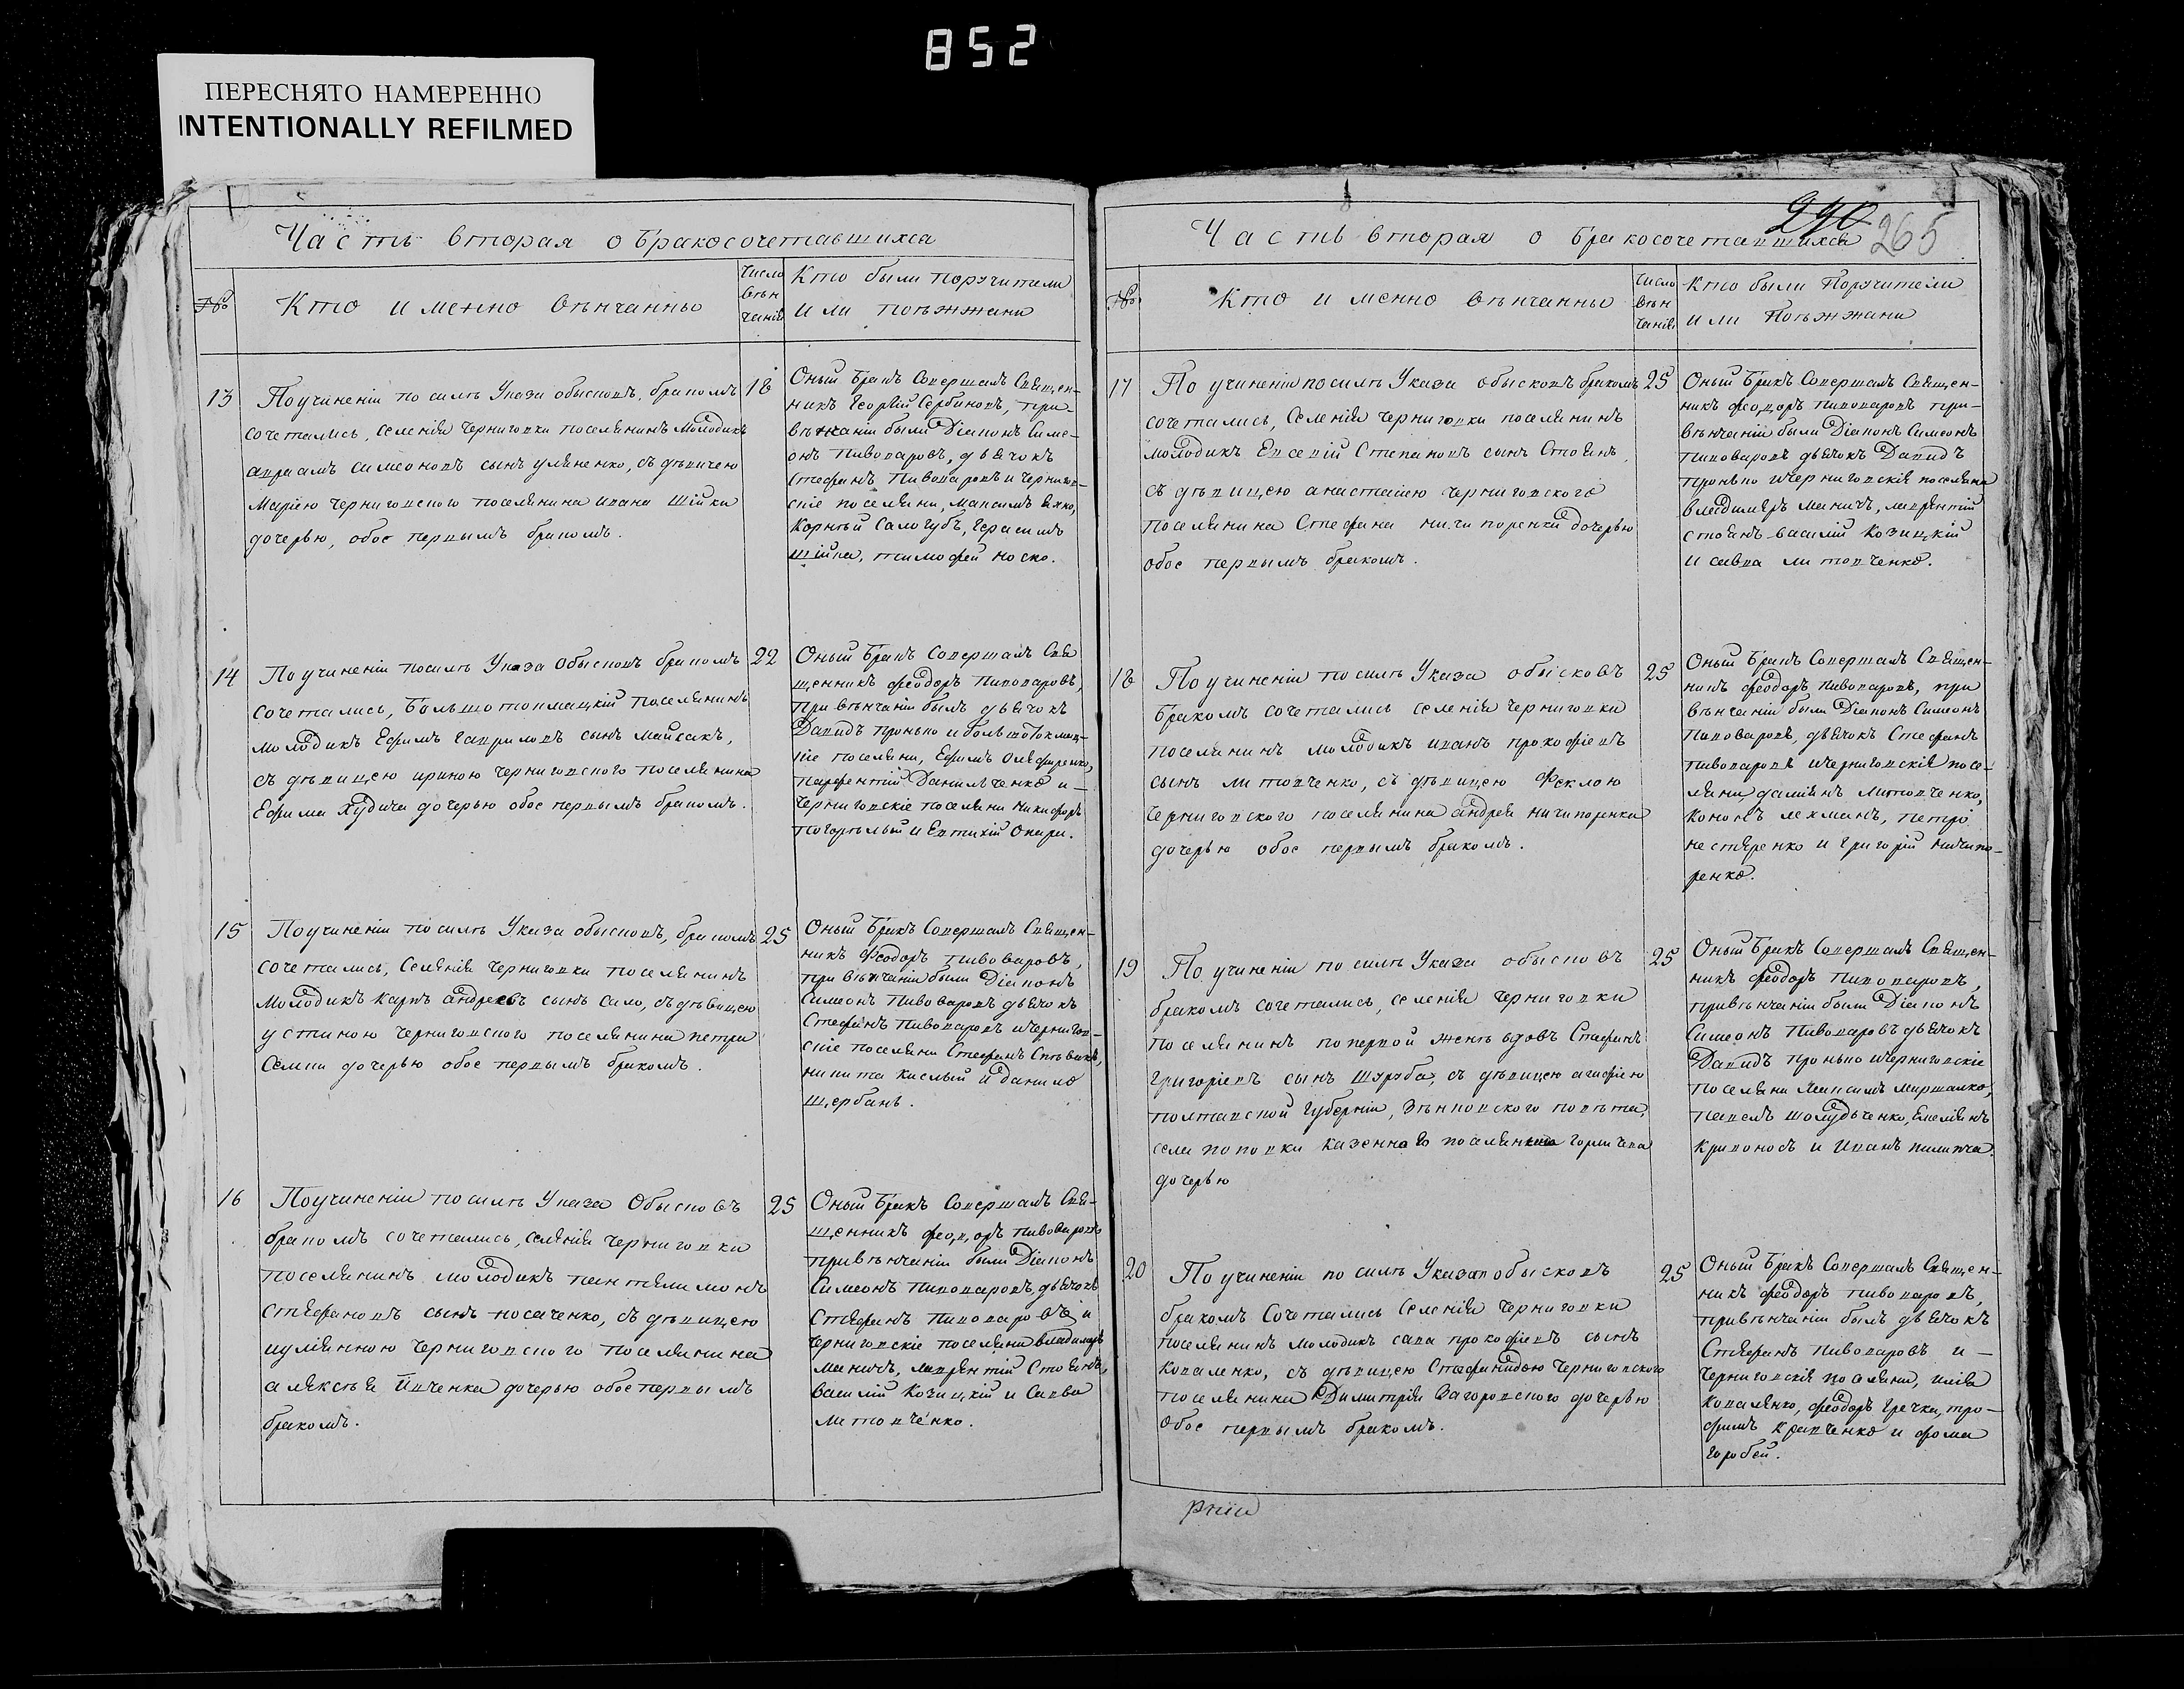 852
ПЕРЕСНЯТО НАМЕРЕННО
INTENTIONALLY REFILMED
Часть вторая о бракосочетавшихся
№
Кто именно вѣнчанны
Число
вѣн
чанія
Кто были поручители
или поѣзжани
13
По учиненіи по силѣ Указа обысковъ, бракомъ
сочетались, селенія Черниговки поселянинъ молодикъ
авраамъ симеоновъ сынъ уляненко, съ дѣвицею
Маріею Черниговского поселянина ивана Шійки
дочерью, обое первымъ бракомъ.
18
Оный бракъ Совершалъ Священ-
никъ Георгій Сербиновъ, при
вѣнчаніи были Діаконъ Симе-
онъ Пивоваровъ, дьячокъ
Стефанъ Пивоваровъ и Чернигов-
скіе поселяни, Максимъ
Корнѣй Салогубъ, Герасимъ
Шійка, тимофей Носко.
14
По учиненіи по силѣ Указа Обысковъ бракомъ
сочетались, Большотокмацкій поселянинъ
молодикъ Ефимъ Гавриловъ сынъ Майсакъ,
съ дѣвицею ириною Черниговского поселянина
Ефима Худича дочерью обое первымъ бракомъ.
22
Оный бракъ Совершалъ Свя
щенникъ Феодоръ Пивоваровъ,
при вѣнчаніи былъ дьячокъ
Давидъ Пронько и большотокмац-
кіе поселяни, Ефимъ Олефиренко,
Парфентій Данильченко и —
Черниговскіе поселяни Никифоръ
Погорѣлый и Евтихій
15
По учиненіи по силѣ Указа обысковъ, бракомъ
сочетались, Селенія Черниговки поселянинъ
молодикъ карпъ андреевъ сынъ Сало, съ дѣвицею
устиною Черниговского поселянина петра
Семки дочерью обое первымъ бракомъ.
25
Оный бракъ Совершалъ Священ-
никъ Феодоръ Пивоваровъ,
при вѣнчаніи были Діаконъ
Симеонъ Пивоваровъ дьячокъ
Стефанъ Пивоваровъ и Чернигов-
скіе поселяни Стефанъ Спѣвакъ,
никита кислый и данило
Щербанъ.
16
По учиненіи по силѣ Указа Обысковъ
бракомъ сочетались, селенія Черниговки
поселянинъ молодикъ пантелимонъ
Стефановъ сынъ носаченко, съ дѣвицею
иуліянною Черниговского поселянина
алексѣя Ивченка дочерью обое первымъ
бракомъ.
25
Оный бракъ Совершалъ Свя-
щенникъ феодоръ пивоваровъ
при вѣнчаніи были Діаконъ
Симеонъ Пивоваровъ, дьячокъ
Стефанъ Пивоваровъ и
Черниговскіе поселяни владимиръ
маничъ, лаврентій Стоянъ,
василій Козицкій и Савва
литовченко.
290 265
Часть вторая о бракосочетавшихся
№
Кто именно вѣнчанны
Число
вѣн
чанія
Кто были Поручители
или Поѣзжани
17
По учиненіи по силѣ Указа обысковъ бракомъ
сочетались, Селенія Черниговки поселянинъ
молодикъ Евсевій Степановъ сынъ Стоянъ,
съ дѣвицею анастасіею Черниговского
поселянина Стефана ничипоренка дочерью
обое первымъ бракомъ.
25
Оный бракъ Совершалъ Священ-
никъ феодоръ пивоваровъ при-
вѣнчаніи были Діаконъ Симеонъ
Пивоваровъ дьячокъ Давидъ
пронько и черниговскія поселяна
владимиръ маничъ, лаврентій
стоянъ василій Козицкій
и савва литовченко.
18
По учиненіи по силѣ Указа обысковъ
бракомъ сочетались селенія Черниговки
поселянинъ молодикъ иванъ прокофіевъ
сынъ литовченко, съ дѣвицею Феклою
Черниговского поселянина андрея ничипоренка
дочерью обое первымъ бракомъ.
25
Оный бракъ Совершалъ Священ-
никъ феодоръ пивоваровъ, при
вѣнчаніи были Діаконъ Симеонъ
Пивоваровъ, дьячокъ Стефанъ
пивоваровъ и черниговскія посе-
ляни, даміянъ литовченко,
Кононъ лехманъ, петро
нестеренко и григорій ничипо-
ренко.
19
По учиненіи по силѣ Указа обысковъ
бракомъ сочетались, селенія Черниговки
поселянинъ по первой женѣ вдовъ Стефанъ
григоріевъ сынъ Шуруба, съ дѣвицею агафіею
полтавской губерніи, Зѣнковского повѣта,
села поповки казенного поселянина
дочерью
25
Оный бракъ Совершалъ Священ-
никъ феодоръ Пивоваровъ,
при вѣнчаніи были Діаконъ
Симеонъ Пивоваровъ дьячокъ
Давидъ пронько и черниговскіе
поселяни Максимъ миршалко,
павелъ шолудченко, Емеліянъ
кривоносъ и Иванъ пилипча.
20
По учиненіи по силѣ Указа обысковъ
бракомъ Сочетались Селенія Черниговки
поселянинъ молодикъ сава прокофіевъ сынъ
коваленко, съ дѣвицею Стефанидою Черниговского
поселянина Димитрія Загоровского дочерью
Обое первымъ бракомъ.
25
Оный бракъ Совершалъ Священ-
никъ феодоръ пивоваровъ,
при вѣнчаніи былъ дьячокъ
Стефанъ пивоваровъ и —
Черниговскія поселяни, илія
коваленко, феодоръ гречка, тро-
фимъ кравченко и фома
горобей.